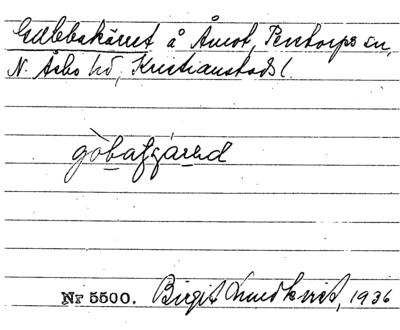 Gubbakärret å Åmot, Perstorps sn,
N. Åsbo hd, Kristianstads l.
Nr 5500. Birgit Lundkvist, 1936